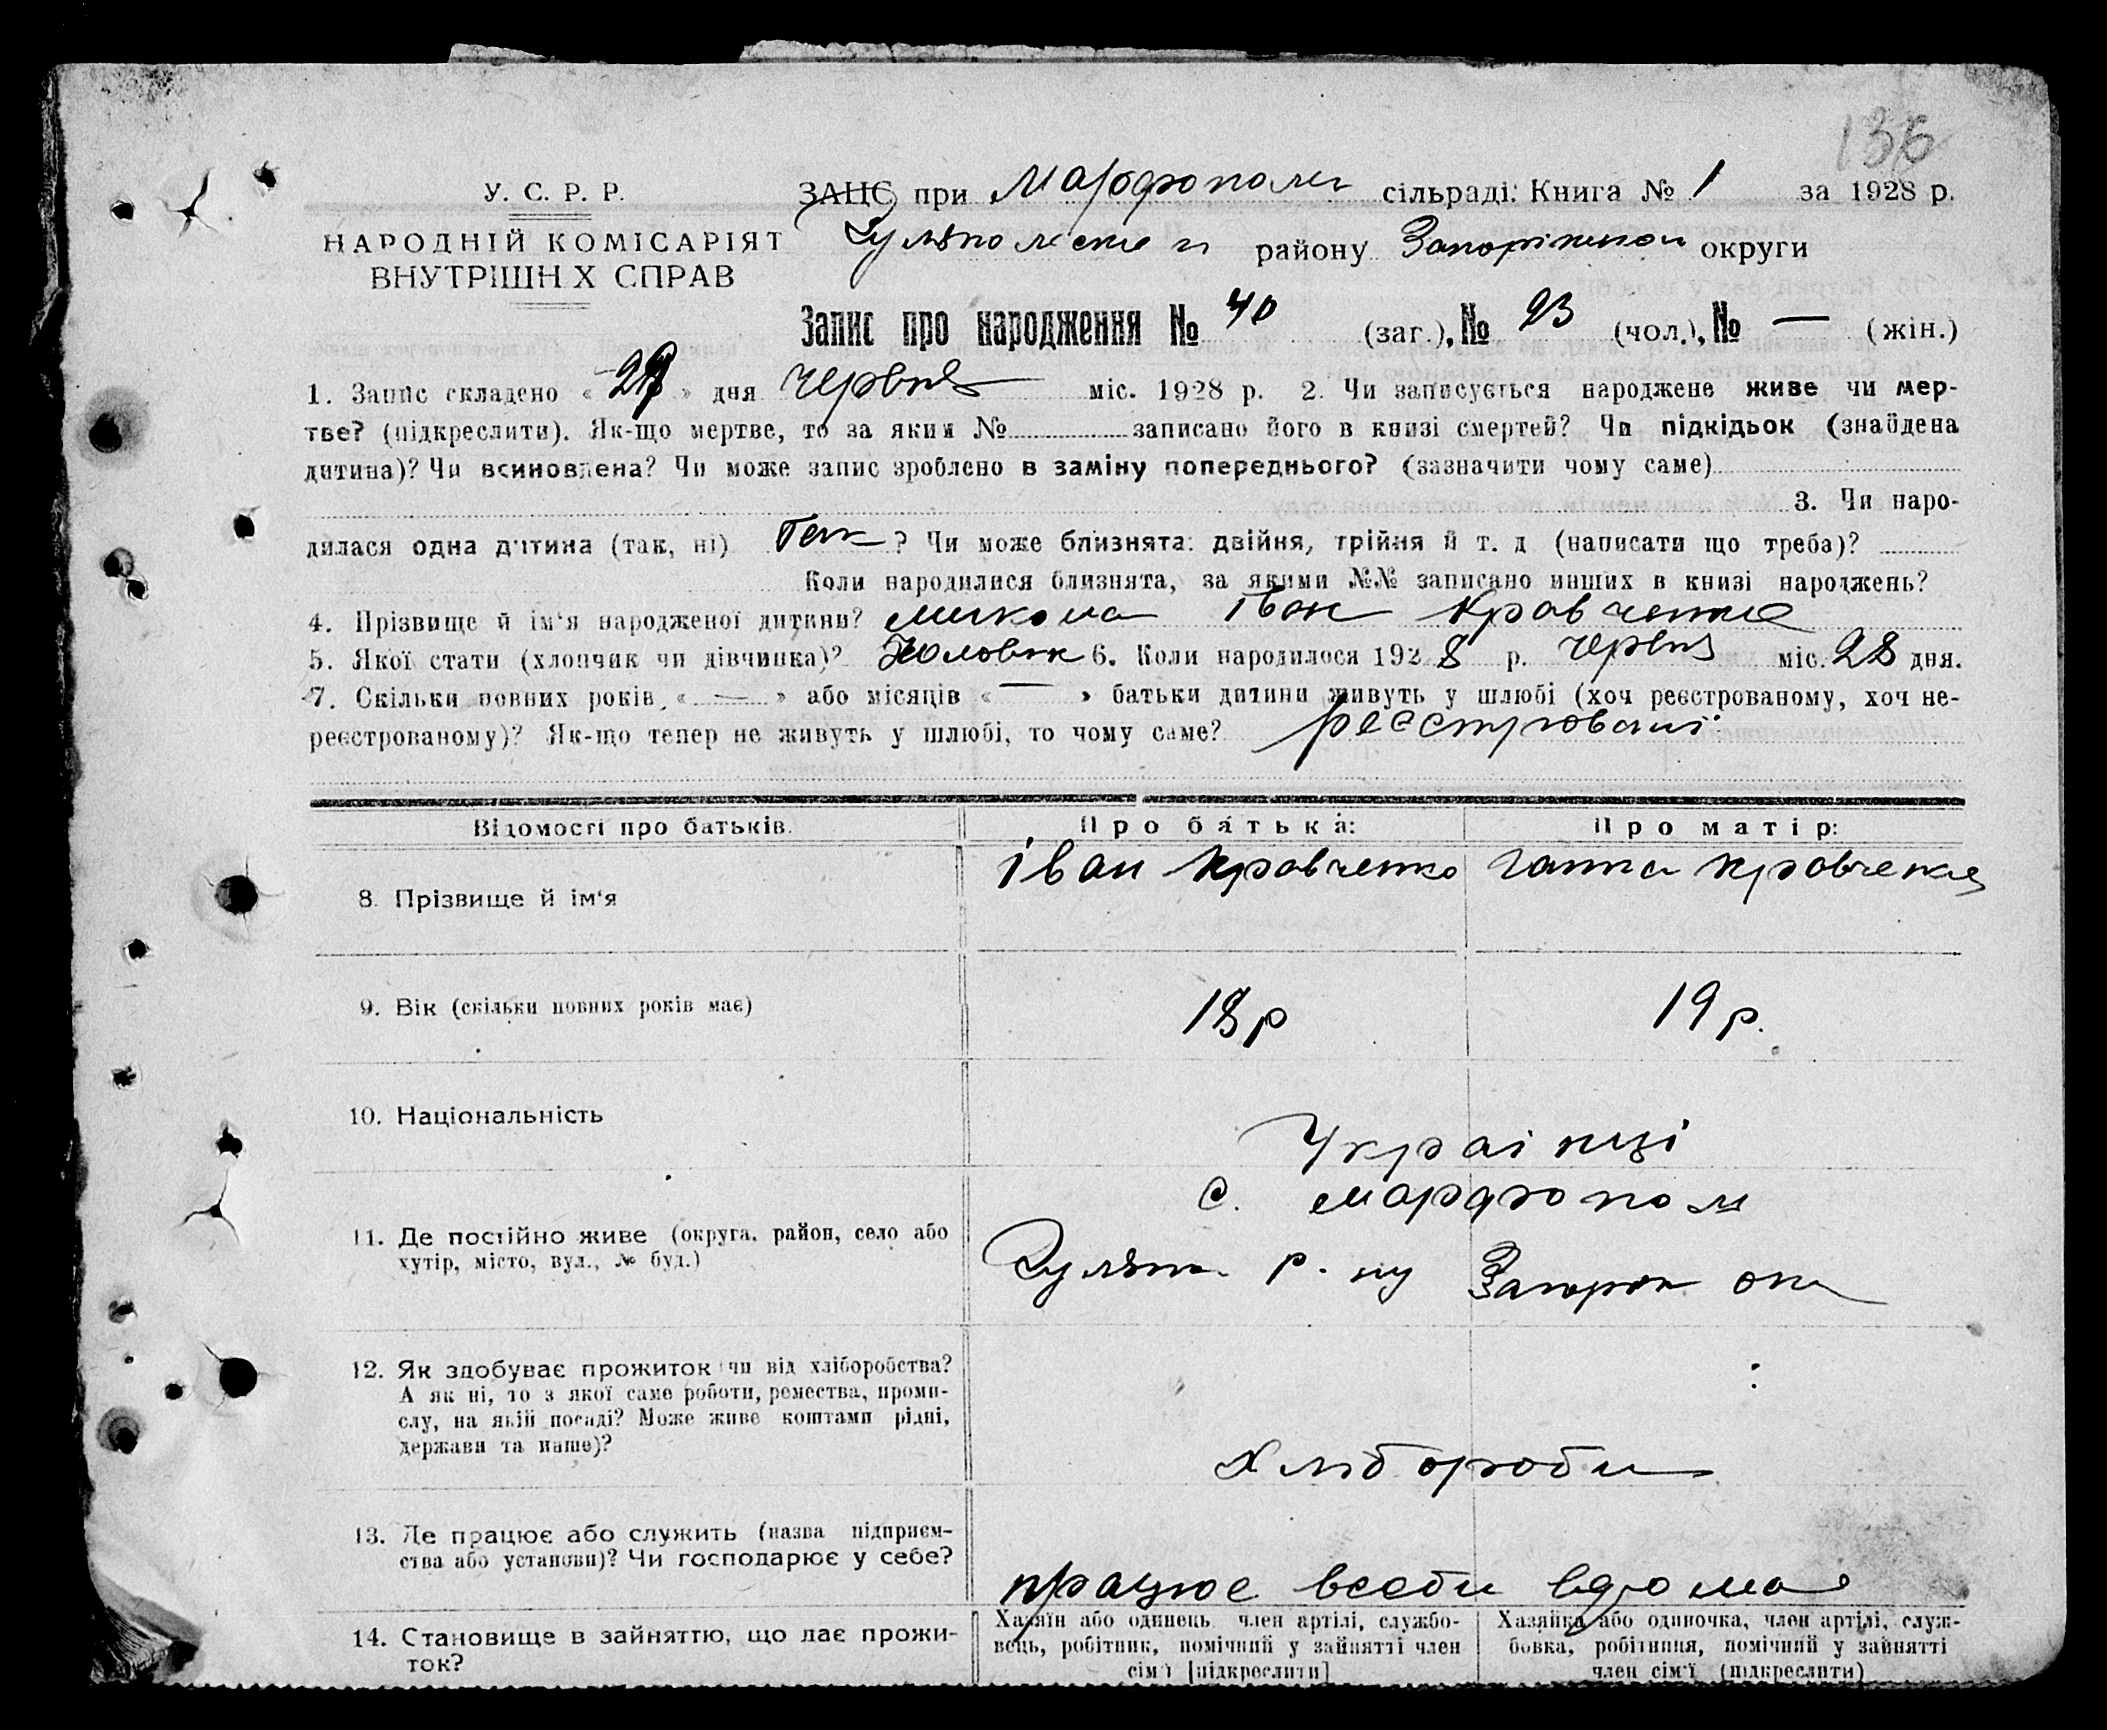 136
У. С. Р. Р.
НАРОДНІЙ КОМІСАРІЯТ
ВНУТРІШН Х СПРАВ
ЗАЦС при Марфополи сільраді: Книга № 1 за 1928 р.
Гуляпольски району Запоріжкои округи
Запис про народження № 40 (заг.), № 23 (чол.), № — (жін.)
1. Запис складено « 29 » дня червня міс. 1928 р. 2. Чи записується народжене живе чи мер-
тве? (підкреслити). Як-що мертве, то за яким № записано його в книзі смертей? Чи підкідьок (знайдена
дитина)? Чи всиновлена? Чи може запис зроблено в заміну попереднього? (зазначити чому саме)
3. Чи наро-
дилася одна дитина (так, ні) Так ? Чи може близнята: двійня, трійня й т. д (написати що треба)?
Коли народилися близнята, за якими №№ записано инших в книзі народжень?
4. Прізвище й ім'я народженої дитини? Микола Іван Кравченко
5. Якої стати (хлопчик чи дівчинка)? Жоловік 6. Коли народилося 1928 р. червня міс. 28 дня.
7. Скільки повних років, « — » або місяців « — » батьки дитини живуть у шлюбі (хоч реєстрованому, хоч не-
реєстрованому)? Як-що тепер не живуть у шлюбі, то чому саме? реєстровані
Відомості про батьків.
Про батька:
Про матір:
8. Прізвище й ім'я
Іван Кравченко
Ганна Кравченко
9. Вік (скільки повних років має)
18 р
19 р.
10. Національність
Українці
11. Де постійно живе (округа, район, село або
хутір, місто, вул., № буд.)
с. Марфополь
Гуляп р. ну Запорож окр
12. Як здобуває прожиток чи від хліборобства?
А як ні, то з якої саме роботи, ремества, проми-
слу, на якій посаді? Може живе коштами рідні,
держави та инше)?
Хлібороби
13. Де працює або служить (назва підприєм-
ства або установи)? Чи господарює у себе?
працює всеби вдома
14. Становище в зайняттю, що дає прожи-
ток?
Хазяїн або одинець член артілі, службо-
вець, робітник, помічний у зайнятті член
сім'ї [підкреслити]
Хазяйка або одиночка, член артілі, служ-
бовка, робітниця, помічний у зайнятті
член сім'ї (підкреслити)